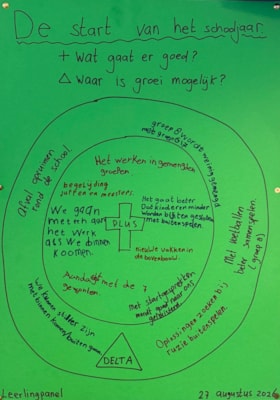 De start van het schooljaar.
+ Wat gaat er goed?
△ Waar is groei mogelijk?
groep 8 wordt weinig gemengd
met groep
Afval opruimen
rond de school
Het werken in gemengde
groepen.
begeleiding
juffen en meesters.
Het gaat beter
Dat kinderen minder
worden buiten gesloten
met buitenspelen.
We gaan
meteen aan
het werk
als we binnen
komen.
PLUS
nieuwe vakken in
de bovenbouw.
Met voetballen
beter samenspelen.
(groep 8)
Aandacht met de 7
gewoonten.
met startgesprekken
wordt goed naar ons
geluisterd.
We kunnen stiller zijn
met binnen komen/buiten gaan.
Oplossingen zoeken bij
ruzie buitenspelen.
DELTA
Leerlingpanel
27 augustus 202